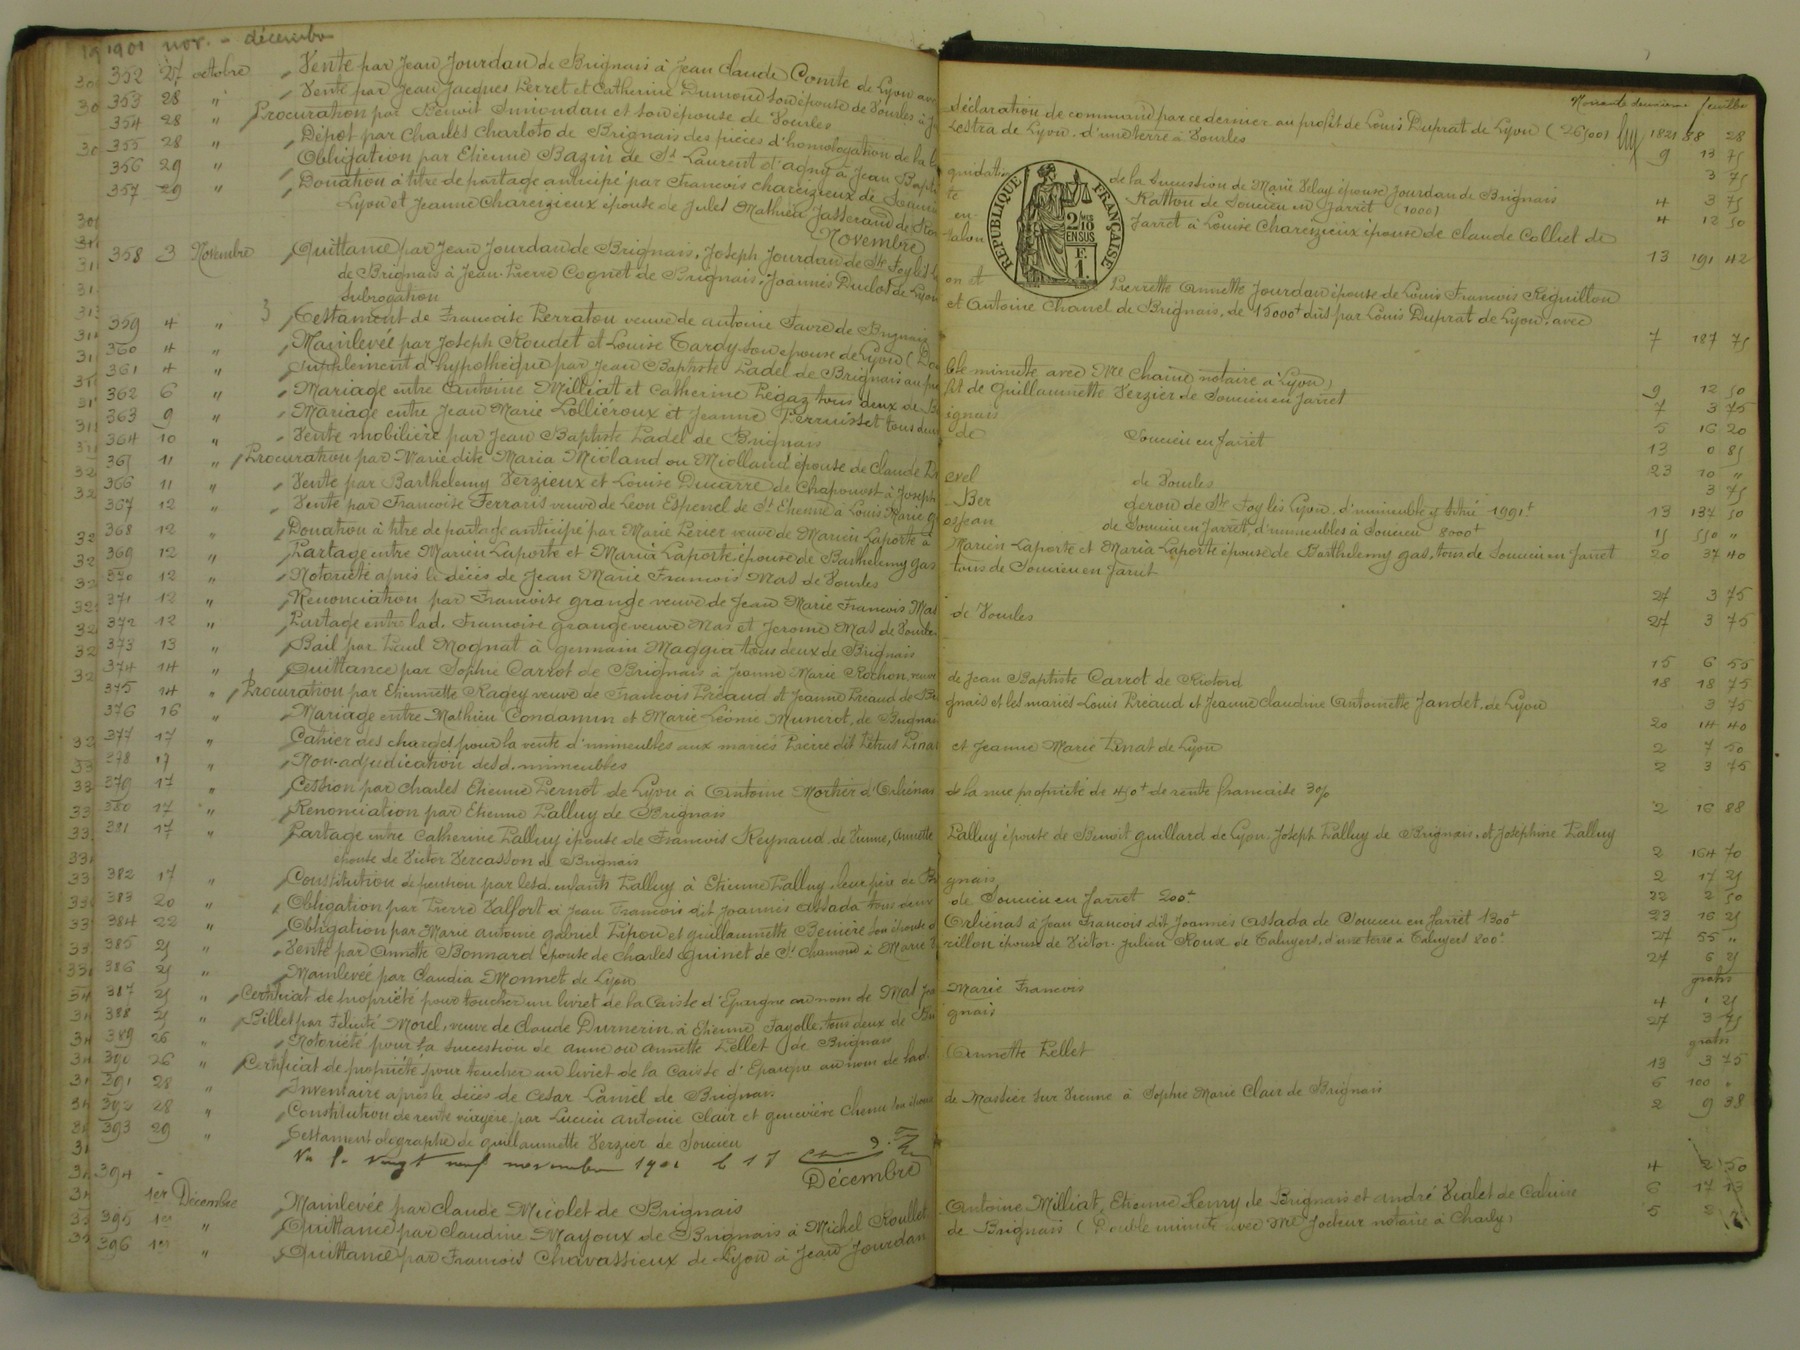 1901 nov. - décembre
352 27 octobre Vente par Jean Jourdan de Brignais à Jean Claude Comte de Lyon avec
353 28 " Vente par Jean Jacques Perret et Catherine Dumond son épouse de Vourles à
354 28 " Procuration par Benoit et son épouse de Vourles
355 28 " Dépôt par Charles Charloto de Brignais des pièces d'homologation de la
356 29 " Obligation par Etienne Bazin de St Laurent d'agny à Jean Bapti
357 29 " Donation à titre de partage anticipé par Francois Chareizieux de
Lyon et Jeanne Chareizieux épouse de Jules Mathieu Jasserand de
Novembre
358 3 Novembre Quittance par Jean Jourdan de Brignais, Joseph Jourdan de Ste Foy les
de Brignais à Jean-Pierre Cognet de Brignais, Joannès Duclos de Lyon
subrogation
359 4 " Testament de Francoise Perraton veuve de antoine Favre de Brignais
360 4 " Mainlevée par Joseph Roudet et Louise Tardy son épouse de Lyon (Dou
361 4 " Supplément d'hypothèque par Jean Baptiste Padel de Brignais au pro
362 6 " Mariage entre Antoine Milliat et Catherine Pégaz tous deux de Br
363 9 " Mariage entre Jean Marie Lolliéroux et Jeanne Perruisset tous deux
364 10 " Vente mobilière par Jean Baptiste Padel de Brignais
365 11 " Procuration par Marie dite Maria Mioland ou Miolland épouse de Claude
366 11 " Vente par Barthelemy Verzieux et Louise Ducarre de Chaponost à Joseph
367 12 " Vente par Francoise Ferraris veuve de Leon Espenel de St Etienne à Louis Marie
368 12 " Donation à titre de partage anticipé par Marie Perier veuve de Marien Laporte à
369 12 " Partage entre Marien Laporte et Maria Laporte épouse de Barthelemy gas
370 12 " Notoriété après le décès de Jean Marie Francois Mas de Vourles
371 12 " Renonciation par Francoise grange veuve de Jean Marie Francois Mas
372 12 " Partage entre lad. Francoise grange veuve Mas et Jerome Mas de Vourles
373 13 " Bail par Paul Mognat à germain Maggia tous deux de Brignais
374 14 " Quittance par Sophie Carrot de Brignais à Jeanne Marie Rochon, veuve
375 14 " Procuration par Etiennette Ragey veuve de Francois Préaud et Jeanne Préaud de Bri
376 16 " Mariage entre Mathieu Condamin et Marie Léonie Munerot, de Brignais
377 17 " Cahier des charges pour la vente d'immeubles aux mariés Pierre dit Pétrus Pinat
378 17 " Non-adjudication desd. immeubles
379 17 " Cession par Charles Etienne Pernot de Lyon à Antoine Mortier d'Orliénas
380 17 " Renonciation par Etienne Palluy de Brignais
381 17 " Partage entre Catherine Palluy épouse de Francois Reynaud de Vienne, Annette
épouse de Victor Vercasson de Brignais
382 17 " Constitution de pension par lesd. enfants Palluy à Etienne Palluy, leur père de Bri
383 20 " Obligation par Pierre Valfort à Jean Francois dit Joannès Assada tous deux
384 22 " Obligation par Marie antoine gabriel Pipon et guillaumette son épouse d'
385 25 " Vente par Annette Bonnard épouse de Charles Guinet de St Chamond à Marie
386 25 " Mainlevée par Claudia Monnet de Lyon
387 25 " Certificat de propriété pour toucher un livret de la Caisse d'Epargne au nom de Mas Jean
388 25 " Billet par Felicité Morel, veuve de Claude Durnerin à Etienne Fayolle, tous deux de Bri
389 26 " Notoriété pour la succession de anne ou annette Pellet de Brignais
390 26 " Certificat de propriété pour toucher un livret de la Caisse d'Epargne au nom de lad.
391 28 " Inventaire après le décès de Cesar Lamel de Brignais
392 28 " Constitution de rente viagère par Lucien antonie Clair et geneviève Chenu son épouse
393 29 " Testament olographe de guillaumette Verzier de Soucieu
Vu p. vingt neuf novembre 1901
Décembre
394 1er Décembre Mainlevée par Claude Micolet de Brignais
395 1er " Quittance par Claudine Mayoux de Brignais à Michel Roullet
396 1er " Quittance par Francois Chavassieux de Lyon à Jean Jourdan
feuillet
déclaration de command par ce dernier au profit de Louis Duprat de Lyon (26500) 1821 58 28
Lestra de Lyon, d'une terre à Vourles 9 13 75
3 75
de la Succession de Marie Velay épouse Jourdan de Brignais 4 3 75
Rattou de Soucieu en Jarret (1000) 4 12 50
Jarret à Louise Chareizieux épouse de Claude Colliet de
13 191 42
RÉPUBLIQUE FRANÇAISE
2/10 EN SUS
F. 1.
on et Pierrette Annette Jourdan épouse de Louis Francois Réguillon
et Antoine Chanel de Brignais, de 15000f dûs par Louis Duprat de Lyon, avec
7 187 75
ble minute avec Me Chaine notaire à Lyon)
fit de Guillaumette Verzier de Soucieu en Jarret 9 12 50
ignais 7 3 75
de Soucieu en Jarret 5 16 20
13 0 85
23 10 "
de Vourles 3 75
Ber gerou de Ste Foy lès Lyon, d'immeuble 1991f 13 137 50
de Soucieu en Jarret, d'immeubles à Soucieu 8000f 15 550 "
Marien Laporte et Maria Laporte épouse de Barthelemy gas, tous de Soucieu en Jarret 20 37 40
tous de Soucieu en Jarret
27 3 75
de Vourles 27 3 75
15 6 55
de Jean Baptiste Carrot de Riotord 18 18 75
gnais et les mariés Louis Préaud et Jeanne Claudine Antoinette Jandet, de Lyon 3 75
20 14 40
et Jeanne Marie Pinat de Lyon 2 7 50
2 3 75
de la nue propriété de 450f de rente francaise 3%
2 16 88
Palluy épouse de Benoit guillard de Lyon, Joseph Palluy de Brignais, et Joséphine Palluy
2 164 70
gnais 2 17 25
de Soucieu en Jarret 200f 22 2 50
Orliénas à Jean Francois dit Joannès Assada de Soucieu en Jarret 1300f 23 16 25
rillon épouse de Victor-Julien Roux de Taluyers, d'une terre à Taluyers 800f 27 55 "
27 6 25
Marie Francois gratis
gnais 4 1 25
27 3 75
Annette Pellet gratis
13 3 75
6 100 "
de Massieu sur Vienne à Sophie Marie Clair de Brignais 2 9 38
4 2 50
Antoine Milliat, Etienne Henry, de Brignais et André Vialet de Caluire 6 17 13
de Brignais (Double minute avec Me Jocteur notaire à Charly) 5